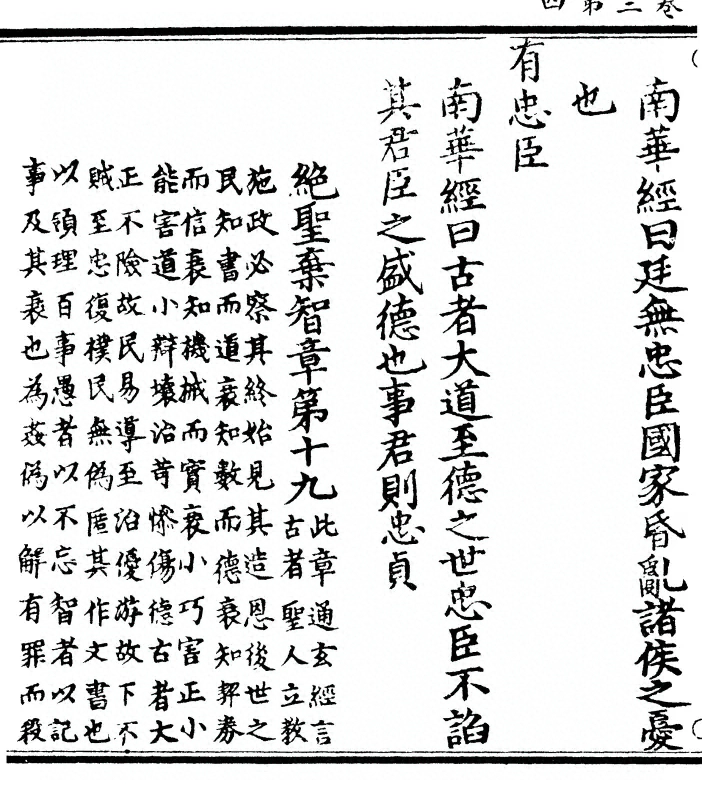 南華經曰廷無忠臣國家昏亂諸侯之憂
也
有忠臣
南華經曰古者大道至德之世忠臣不諂
其君臣之盛德也事君則忠貞
絕聖棄智章第十九
此章通玄經言
古者聖人立教
施政必察其終始見其造恩後世之
民知書而道衰知數而德衰知契券
而信衰知機械而實衰小巧害正小
能害道小辯壞治苛慘傷德古者大
正不險故民易導至治優游故下不
賊至忠復樸民無偽匿其作文書也
以領理百事愚者以不忘智者以記
事及其衰也為姦偽以解有罪而殺